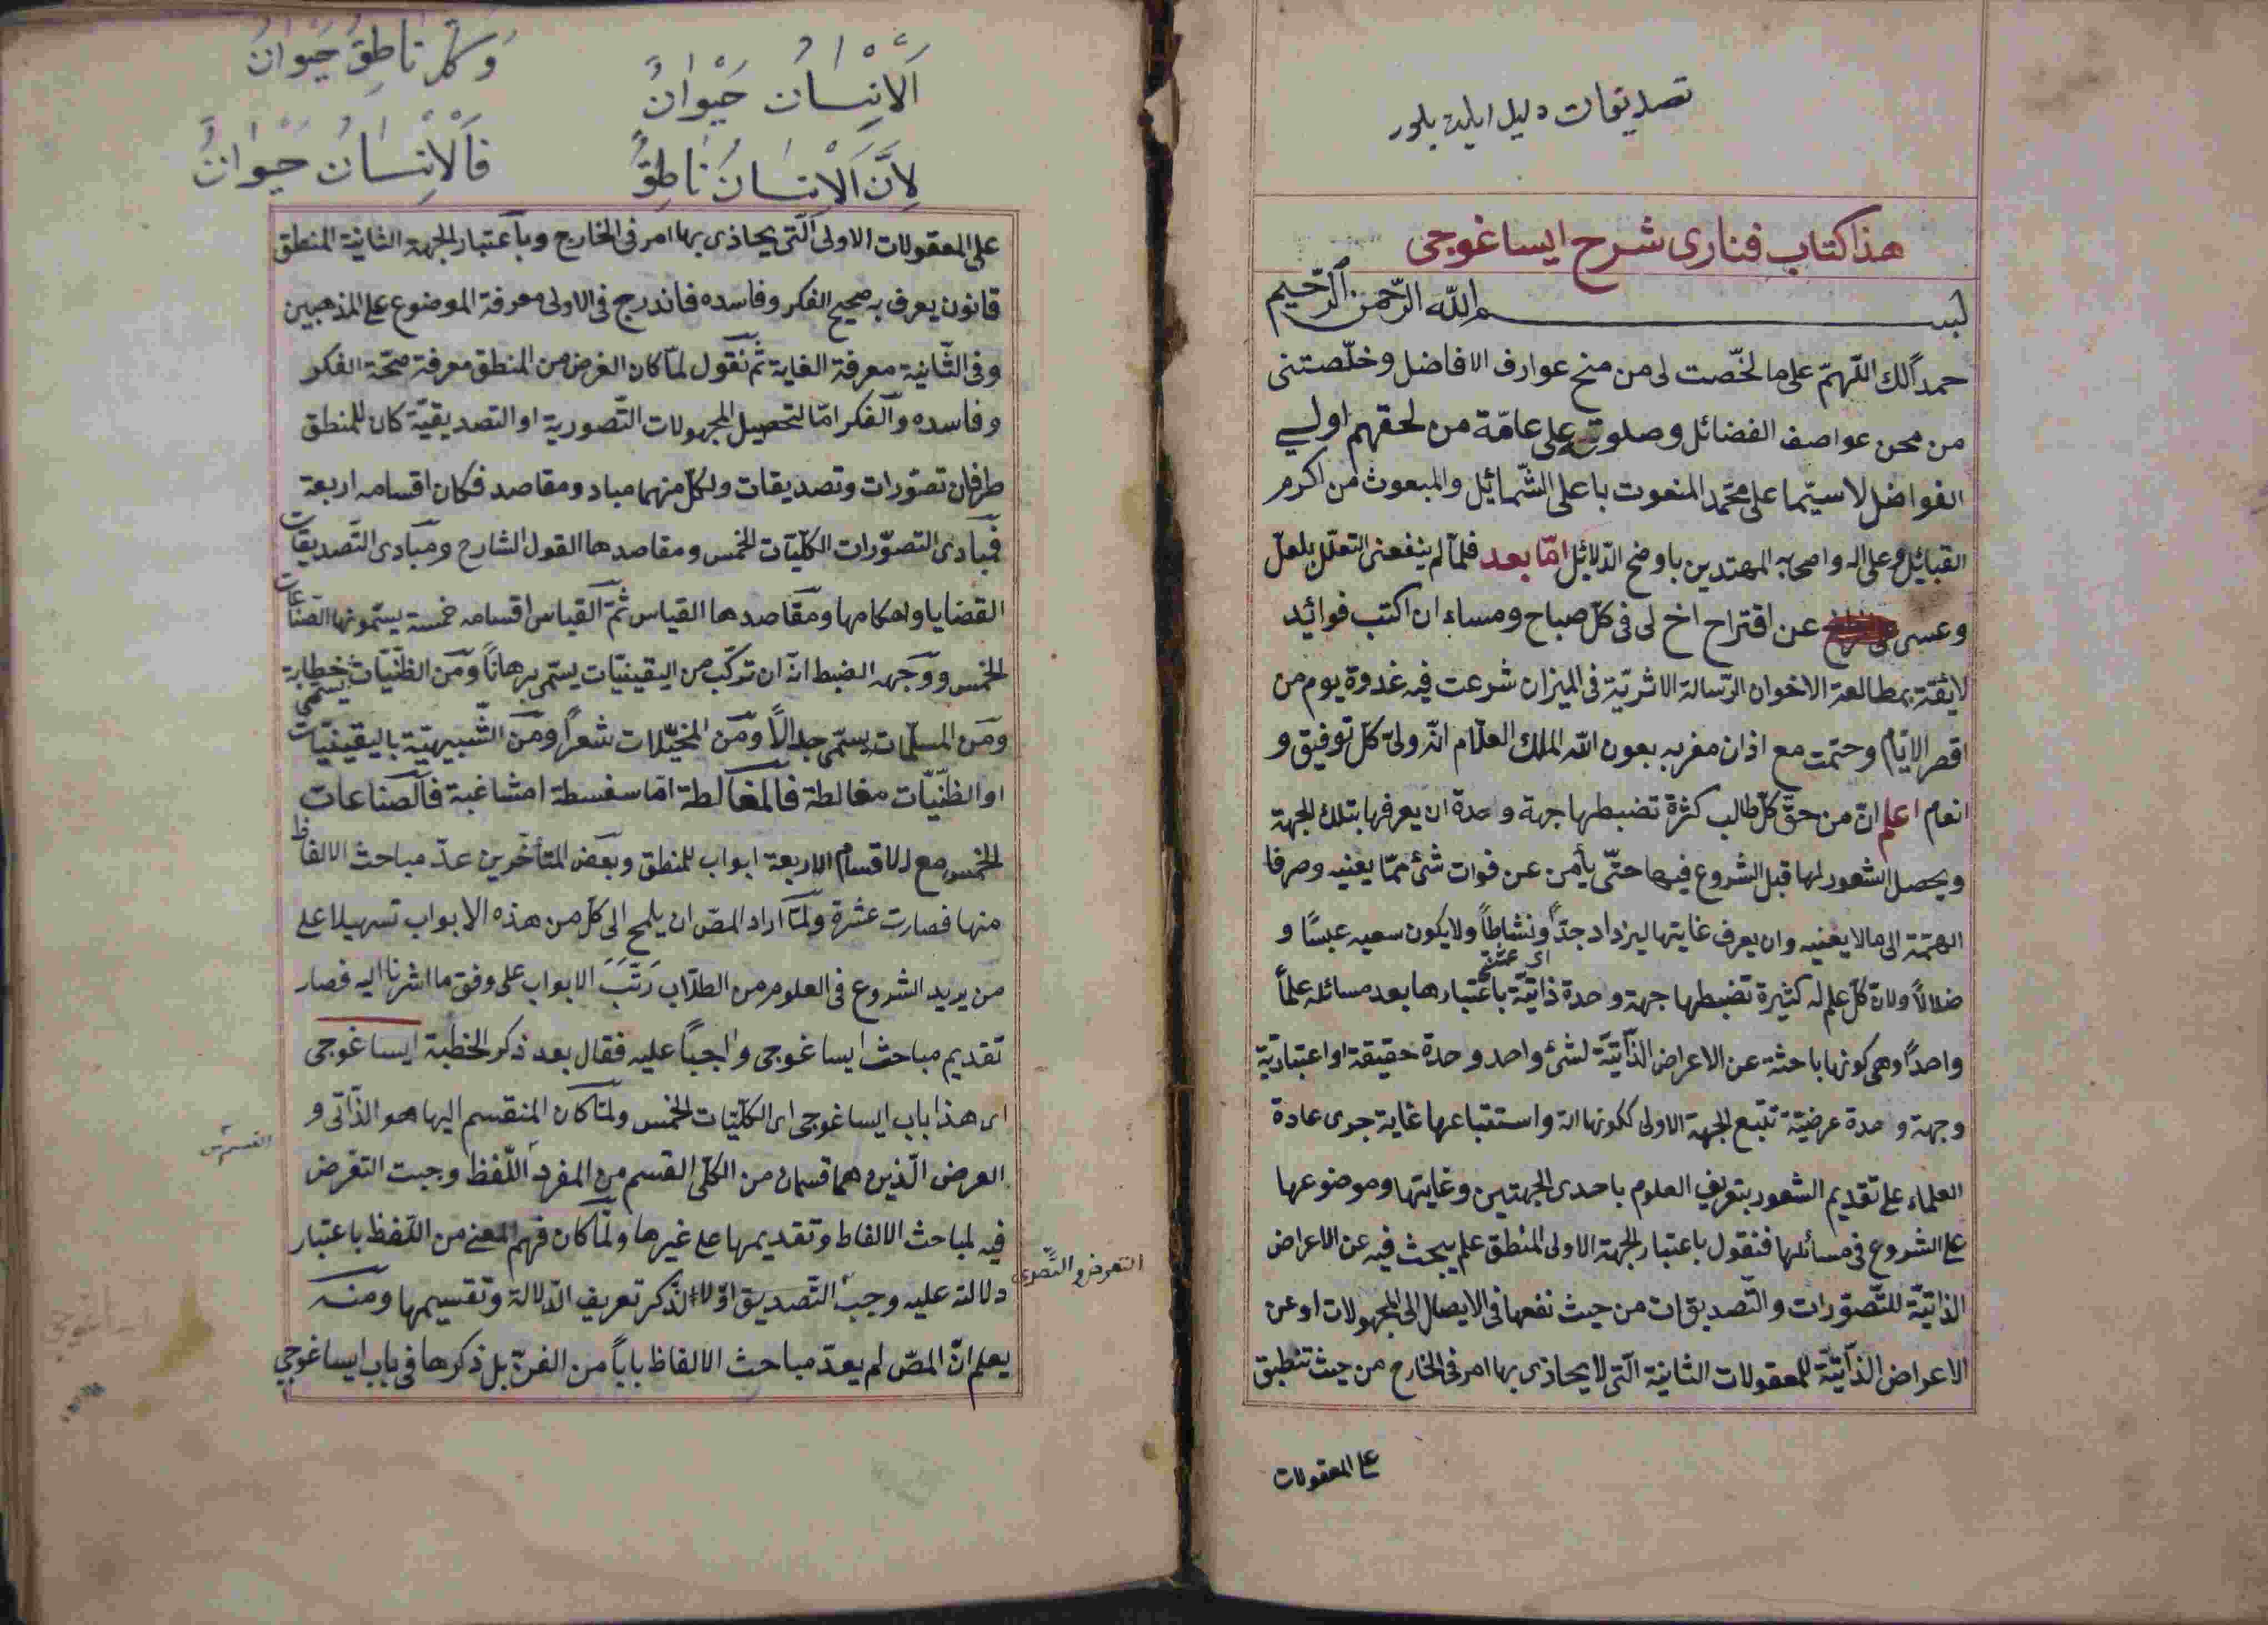 تصديقات دليل ايله بلور
هذا كتاب فنارى شرح ايساغوجى
بسم الله الرّحمن الرّحيم
حمداً لك اللّهمّ على ما لخّصت لى من منح عوارف الافاضل وخلّصتنى
من محن عواصف الفضائل وصلوة على عامّة من لحقهم اولى
الفواضل لا سيّما على محمّد المنعوت باعلى الشّمائل والمبعوث من اكرم
القبائل وعلى اله واصحابه المهتدين باوضح الدّلائل امّا بعد فلمّا لم ينفعنى التعلّل بلعلّ
وعسى عن اقتراح اخ لى فى كلّ صباح ومساء ان اكتب فوائد
لائقة بمطالعة الاخوان الرّسالة الاثريّة فى الميزان شرعت فيه غدوة يوم من
اقصر الايّام وختمت مع اذان مغربه بعون الله الملك العلّام انّه ولىّ كلّ توفيق و
انعام اعلم انّ من حقّ كلّ طالب كثرة تضبطها جهة وحدة ان يعرفها بتلك الجهة
ويحصل الشعور لها قبل الشروع فيها حتّى يأمن عن فوات شئ ممّا يعنيه وصرف
الهمّة الى ما لا يعنيه وان يعرف غايتها ليزداد جدّاً ونشاطاً ولا يكون سعيه عبسًا و
ضلالاً ولانّ كلّ علم له كثيرة تضبطها جهة وحدة ذاتيّة باعتبارها بعد مسائله علماً
واحداً وهى كونها باحثة عن الاعراض الذّاتيّة لشئ واحد وحدة حقيقة او اعتباريّة
وجهة وحدة عرضيّة تتبع الجهة الاولى ككونها الة واستتباعها غاية جرى عادة
العلماء على تقديم الشعور بتعريف العلوم باحدى الجهتين وغايتها وموضوعها
على الشروع فى مسائلها فنقول باعتبار الجهة الاولى المنطق علم يبحث فيه عن الاعراض
الذاتيّة للتّصوّرات والتّصديقات من حيث نفعها فى الايصال الى المجهولات او عن
الاعراض الذّاتيّة للمعقولات الثانية الّتى لا يحاذى بها امر فى الخارج من حيث تنطبق
على المعقولات
اَلْاِنْسَانُ حَيْوَانٌ
لِاَنَّ اَلْاِنْسَانَ نَاطِقٌ
وَكُلُّ نَاطِقٍ حَيْوَانٌ
فَاَلْاِنْسَانُ حَيْوَانٌ
على المعقولات الاولى الّتى يحاذى بها امر فى الخارج وباعتبار الجهة الثانية المنطق
قانون يعرف به صحيح الفكر وفاسده فاندرج فى الاولى معرفة الموضوع على المذهبين
وفى الثّانية معرفة الغاية ثمّ نقول لمّا كان الغرض من المنطق معرفة صحّة الفكر
وفاسده والفكر امّا لتحصيل المجهولات التّصورية او التصديقيّة كان للمنطق
طرفان تصوّرات وتصديقات ولكلّ منهما مباد ومقاصد فكان اقسامه اربعة
فمبادى التصوّرات الكلّيّات الخمس ومقاصدها القول الشارح ومبادى التّصديقات
القضايا واحكامها ومقاصدها القياس ثمّ القياس اقسامه خمسة يسمّونها الصّناعات
الخمس ووجه الضبط انّه ان تركّب من اليقينيّات يسمّى برهاناً ومن الظنّيّات يسمّى خطابة
ومن المسلّمات يسمّى جدالاً ومن المخيّلات شعراً ومن الشّبيهيّة باليقينيّات
او الظنّيّات مغالطة فالمغالطة امّا سفسطة امشاغبة فالصناعات
الخمس مع الاقسام الاربعة ابواب للمنطق وبعض المتأخّرين عدّ مباحث الالفاظ
منها فصارت عشرة ولمّا اراد المصّ ان يلمح الى كلّ من هذه الابواب تسهيلا على
من يريد الشروع فى العلوم من الطلّاب رَتَّبَ الابواب على وفق ما اشرنا اليه فصار
تقديم مباحث ايساغوجى واجباً عليه فقال بعد ذكر الخطبة ايساغوجى
اى هذا باب ايساغوجى اى الكلّيّات الخمس ولمّا كان المنقسم اليها هو الذّاتى و
العرض الّذين هما قسمان من الكلّى القسم من المفرد اللّفظ وجبت التعرّض
فيه لمباحث الالفاظ وتقديمها على غيرها ولمّا كان فهم المعنى من اللّفظ باعتبار
دلالته عليه وجب التّصديق اوّلا لذكر تعريف الدّلالة وتقسيمها ومنه
يعلم انّ المصّ لم يعدّ مباحث الالفاظ باباً من الفنّ بل ذكرها فى باب ايساغوجى
التعرض والتّصدى